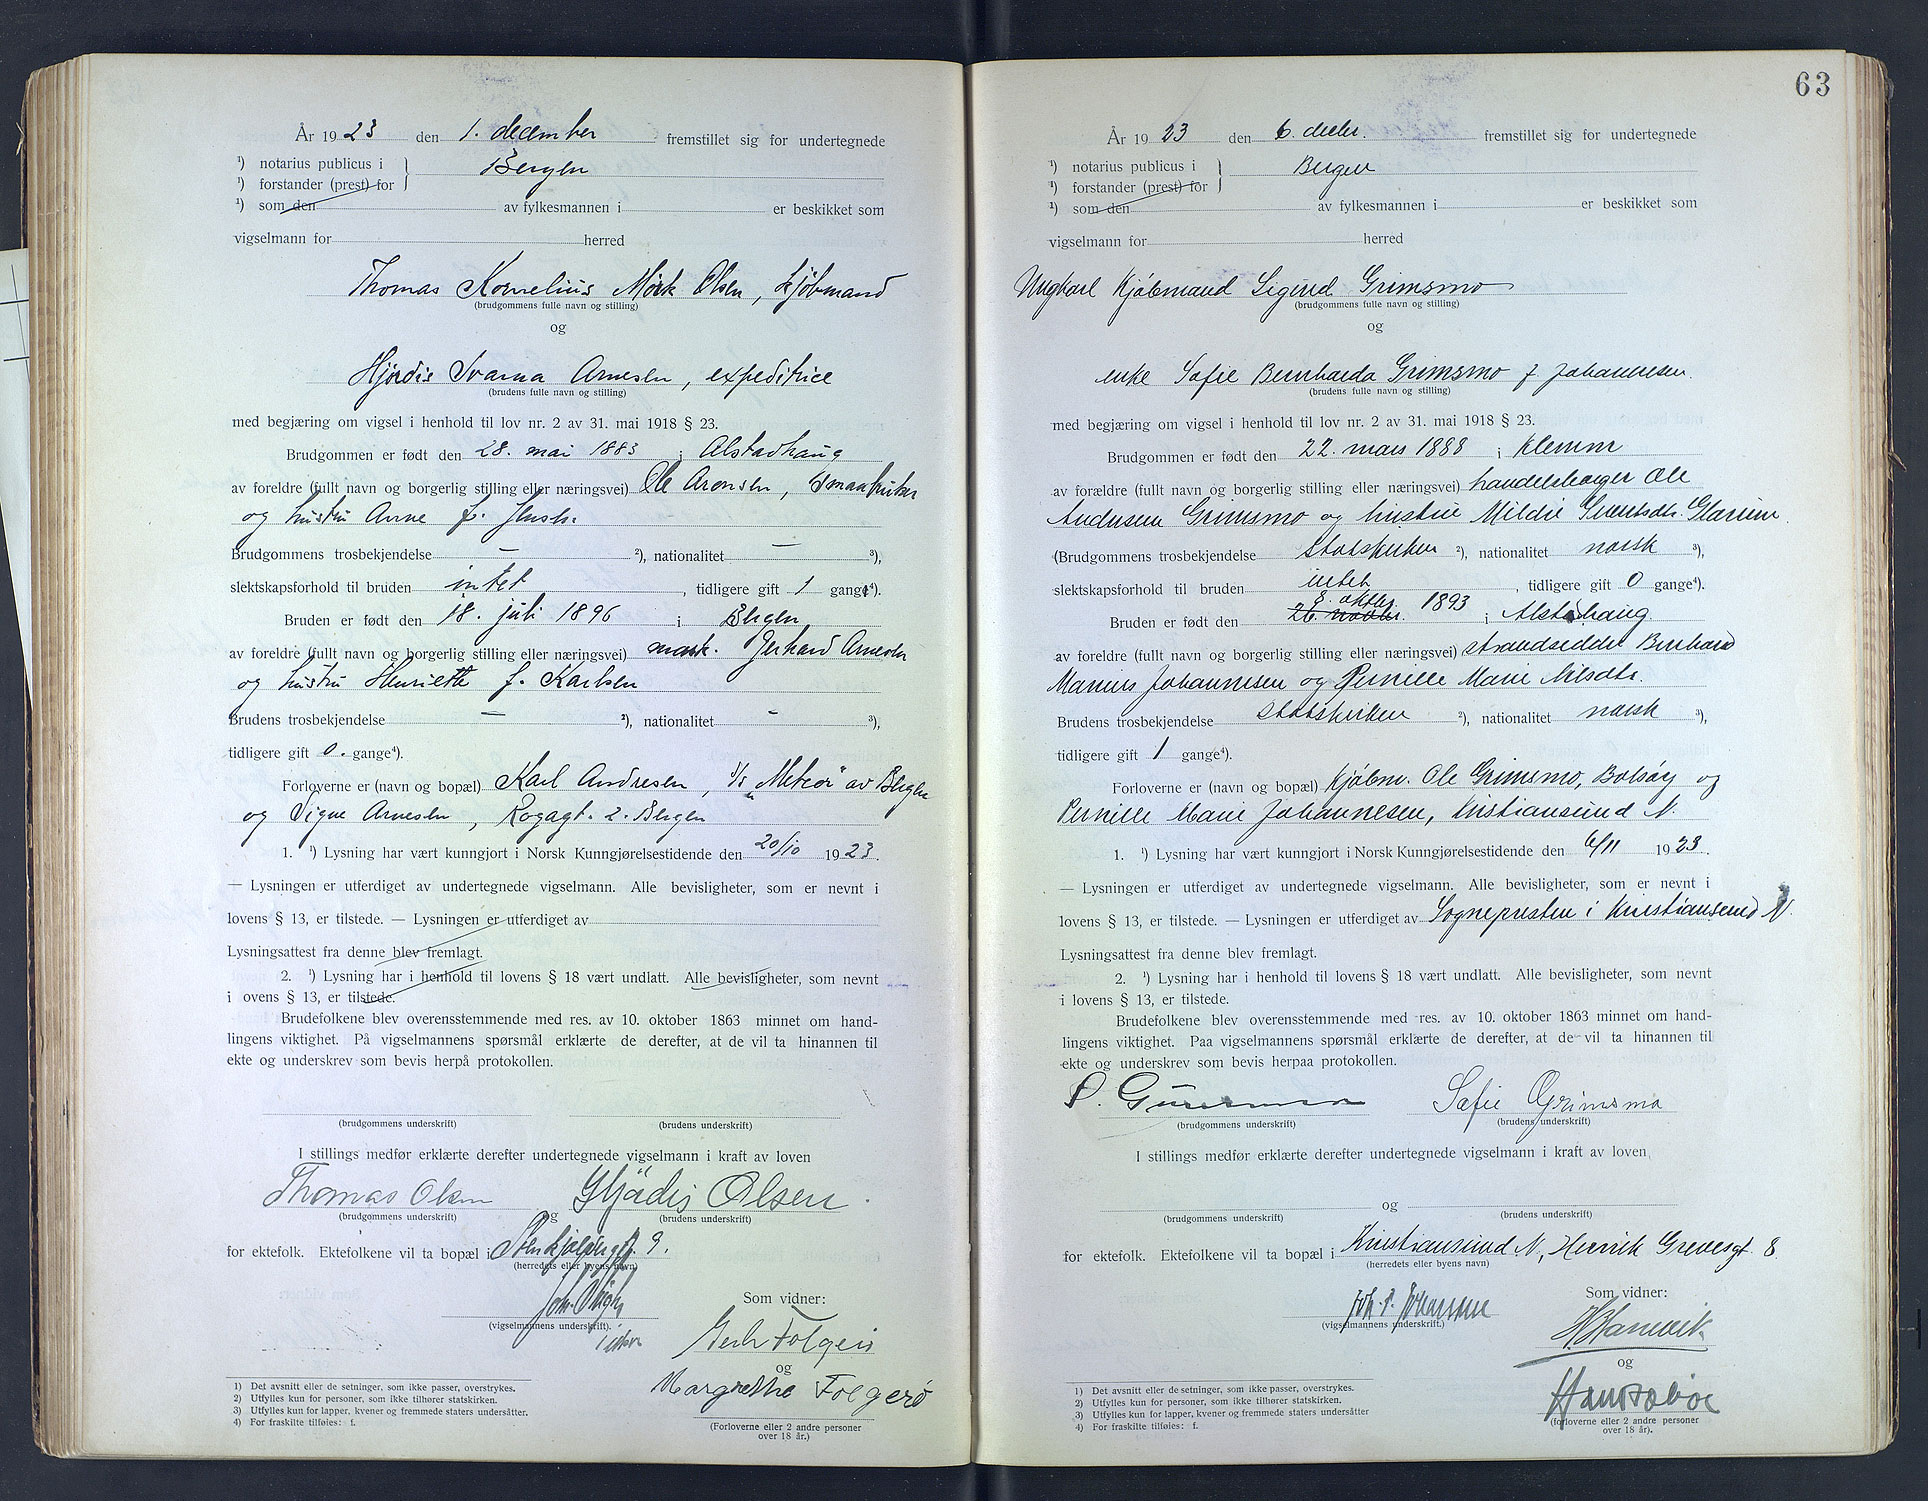 År 1923 den 1. december fremstillet sig for undertegnede
¹) notarius publicus i } Bergen
¹) forstander (prest) for
¹) som den av fylkesmannen i er beskikket som
vigselmann for herred
Thomas Kornelius Mörk Olsen, kjöbmand
(brudgommens fulle navn og stilling)
og
Hjördis Svarna Arnesen, expeditrice
(brudens fulle navn og stilling)
med begjæring om vigsel i henhold til lov nr. 2 av 31. mai 1918 § 23.
Brudgommen er født den 28. mai 1883 i Alstadhaug
av foreldre (fullt navn og borgerlig stilling eller næringsvei) Ole Aronsen, Smaabruker
og hustru Anne f. Jensd.
Brudgommens trosbekjendelse — ²), nationalitet — ³),
slektskapsforhold til bruden intet, tidligere gift 1 gang⁴).
Bruden er født den 18. juli 1896 i Bergen
av foreldre (fullt navn og borgerlig stilling eller næringsvei) mask. Gerhard Arnesen
og hustru Henriette f. Karlsen
Brudens trosbekjendelse — ²), nationalitet — ³),
tidligere gift 0. gange⁴).
Forloverne er (navn og bopæl) Karl Andresen, D/S „Meteor" av Bergen
og Signe Arnesen, Rogagt. 2. Bergen
1. ¹) Lysning har vært kunngjort i Norsk Kunngjørelsestidende den 20/10 1923.
— Lysningen er utferdiget av undertegnede vigselmann. Alle bevisligheter, som er nevnt i
lovens § 13, er tilstede. — Lysningen er utferdiget av
Lysningsattest fra denne blev fremlagt.
2. ¹) Lysning har i henhold til lovens § 18 vært undlatt. Alle bevisligheter, som nevnt
i ovens § 13, er tilstede.
Brudefolkene blev overensstemmende med res. av 10. oktober 1863 minnet om hand-
lingens viktighet. På vigselmannens spørsmål erklærte de derefter, at de vil ta hinannen til
ekte og underskrev som bevis herpå protokollen.
(brudgommens underskrift) (brudens underskrift)
I stillings medfør erklærte derefter undertegnede vigselmann i kraft av loven
Thomas Olsen og Hjördis Olsen.
(brudgommens underskrift) (brudens underskrift)
for ektefolk. Ektefolkene vil ta bopæl i 9.
(herredets eller byens navn)
Som vidner:
(vigselmannens underskrift).
Folgerö
og
Margrethe Folgerö
(Forloverne eller 2 andre personer
over 18 år.)
1) Det avsnitt eller de setninger, som ikke passer, overstrykes.
2) Utfylles kun for personer, som ikke tilhører statskirken.
3) Utfylles kun for lapper, kvener og fremmede staters undersåtter.
4) For fraskilte tilføies: f.
63
År 1923 den 6. decbr. fremstillet sig for undertegnede
¹) notarius publicus i } Bergen
¹) forstander (prest) for
¹) som den av fylkesmannen i er beskikket som
vigselmann for herred
Ungkarl kjöbmand Sigurd Grimsmo
(brudgommens fulle navn og stilling)
og
enke Sofie Bernharda Grimsmo f Johannesen.
(brudens fulle navn og stilling)
med begjæring om vigsel i henhold til lov nr. 2 av 31. mai 1918 § 23.
Brudgommen er født den 22. mars 1888 i Klemm
av forældre (fullt navn og borgerlig stilling eller næringsvei) handelsborger Ole
Andersen Grimsmo og hustru Mildri Sivertsdtr. Glærum.
(Brudgommens trosbekjendelse Statskirken ²), nationalitet norsk ³),
slektskapsforhold til bruden intet, tidligere gift 0 gange⁴).
8. oktbr.
Bruden er født den 26. novbr. 1893 i Alstahaug.
av foreldre (fullt navn og borgerlig stilling eller næringsvei) strandsidder Bernhard
Marius Johannesen og Pernille Marie Nilsdtr.
Brudens trosbekjendelse statskirken ²), nationalitet norsk ³),
tidligere gift 1 gange⁴).
Forloverne er (navn og bopæl) kjöbm. Ole Grimsmo, Bolsöy og
Pernille Marie Johannesen, Kristiansund N.
1. ¹) Lysning har vært kunngjort i Norsk Kunngjørelsestidende den 6/11 1923.
— Lysningen er utferdiget av undertegnede vigselmann. Alle bevisligheter, som er nevnt i
lovens § 13, er tilstede. — Lysningen er utferdiget av Sognepresten i Kristiansund N.
Lysningsattest fra denne blev fremlagt.
2. ¹) Lysning har i henhold til lovens § 18 vært undlatt. Alle bevisligheter, som nevnt
i lovens § 13, er tilstede.
Brudefolkene blev overensstemmende med res. av 10. oktober 1863 minnet om hand-
lingens viktighet. Paa vigselmannens spørsmål erklærte de derefter, at de vil ta hinannen til
ekte og underskrev som bevis herpaa protokollen.
S. Grimsmo Sofie Grimsmo
(brudgommens underskrift) (brudens underskrift)
I stillings medfør erklærte derefter undertegnede vigselmann i kraft av loven
og
(brudgommens underskrift) (brudens underskrift)
for ektefolk. Ektefolkene vil ta bopæl i Kristiansund N, Henrik Grevesgt. 8
(herredets eller byens navn)
Som vidner:
(vigselmannens underskrift.)
og
(forloverne eller 2 andre personer
over 18 år).
1) Det avsnitt eller de setninger, som ikke passer, overstrykes.
2) Utfylles kun for personer, som ikke tilhører statskirken.
3) Utfylles kun for lapper, kvener og fremmede staters undersåtter
4) For fraskilte tilføies: f.